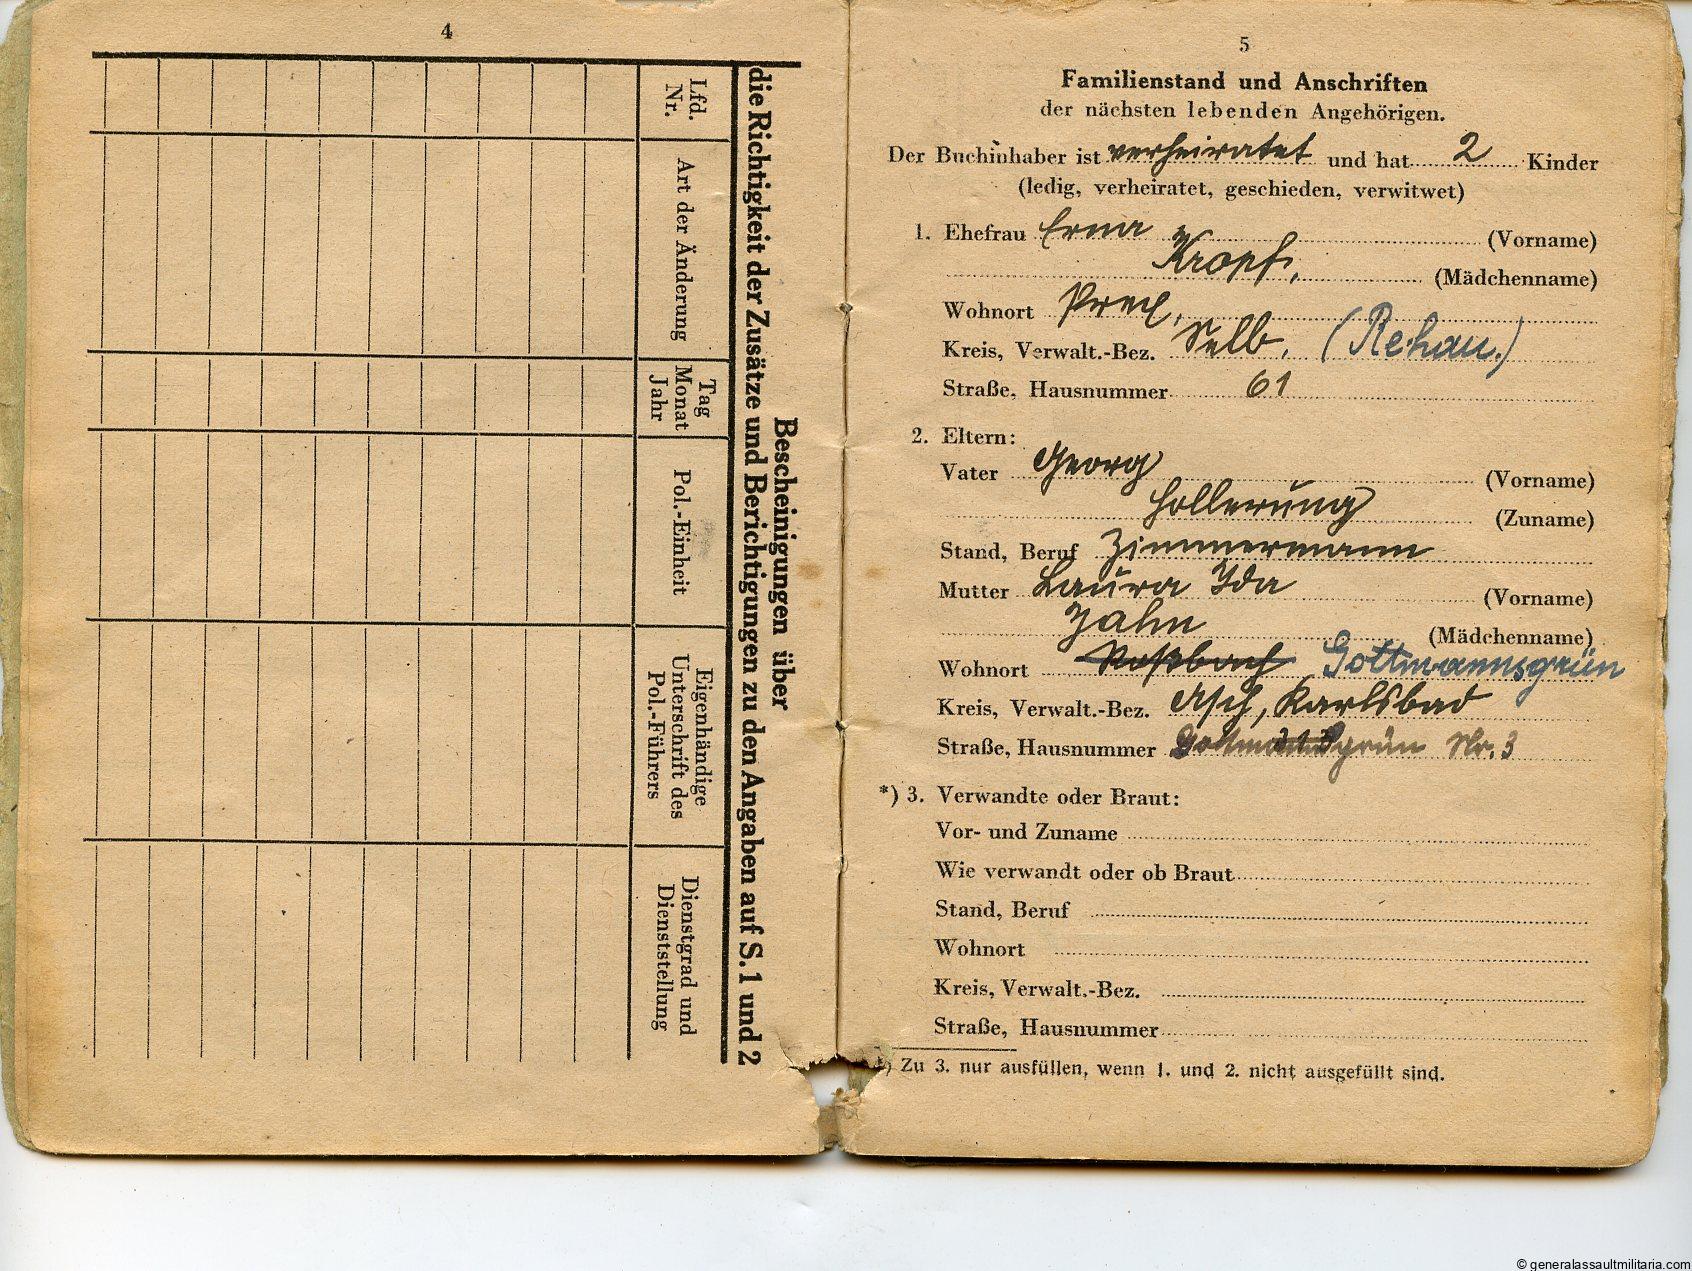 4
Bescheinigungen über
die Richtigkeit der Zusätze und Berichtigungen zu den Angaben auf S. 1 und 2
Lfd. Nr.
Art der Änderung
Tag Monat Jahr
Pol.-Einheit
Eigenhändige Unterschrift des Pol.-Führers
Dienstgrad und Dienststellung
5
Familienstand und Anschriften
der nächsten lebenden Angehörigen.
Der Buchinhaber ist verheiratet und hat 2 Kinder
(ledig, verheiratet, geschieden, verwitwet)
1. Ehefrau Erna (Vorname)
Kropf, (Mädchenname)
Wohnort
Kreis, Verwalt.-Bez. Selb. (Rehau.)
Straße, Hausnummer 61
2. Eltern:
Vater Georg (Vorname)
Hollerung (Zuname)
Stand, Beruf Zimmermann
Mutter Laura Ida (Vorname)
Jahn (Mädchenname)
Wohnort Roßbach Gottmannsgrün
Kreis, Verwalt.-Bez. Asch, Karlsbad
Straße, Hausnummer Gottmannsgrün Nr. 3
*) 3. Verwandte oder Braut:
Vor- und Zuname
Wie verwandt oder ob Braut
Stand, Beruf
Wohnort
Kreis, Verwalt.-Bez.
Straße, Hausnummer
*) Zu 3. nur ausfüllen, wenn 1. und 2. nicht ausgefüllt sind.
© generalassaultmilitaria.com